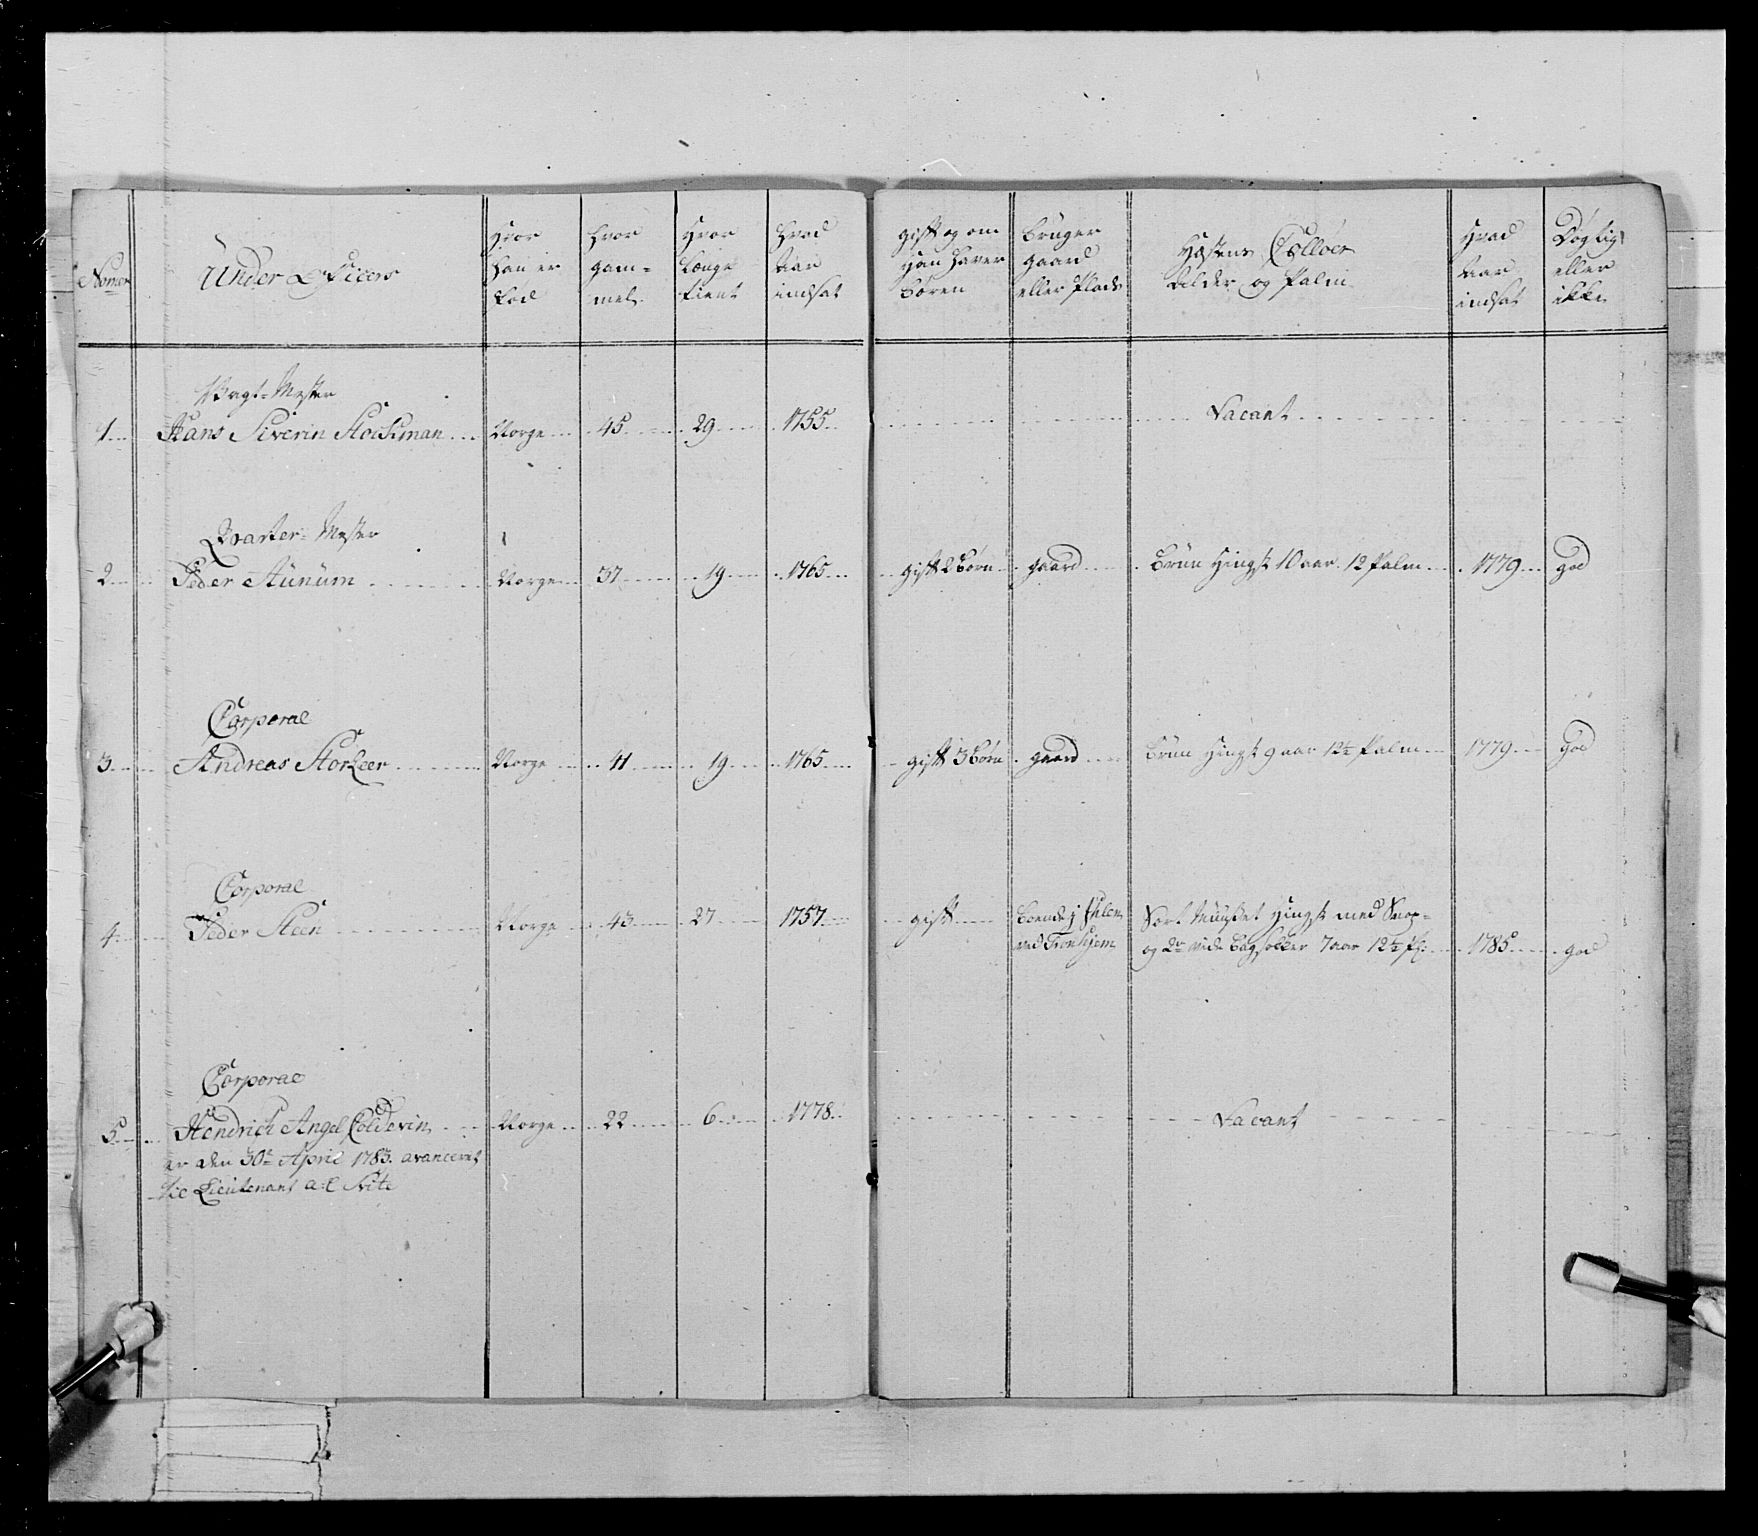 Nomer
Under Officers
Hvor
han er
fød
hvor
gam=
mel.
Hvor
længe
tient
hvad
Aar
indsat
gift og om
han haver
børen
bruger
gaard
eller Plads
Hæstens Collöer
Alder og Palm
Hvad
Aar
indsat
Dygtig
eller
ikke
Vagt=Mester
1 Hans Siverin Hochman Norge 45 29 1755 Vacant
Qvarter=Mester
2 Peder Aunum Norge 37 19 1765 gift 2 børn gaard brun Hingst 10 aar 12 Palm 1779 god
Corporal
3 Andreas Storleer Norge 41 19 1765 gift 3 børn gaard brun Hingst 9 aar 12½ Palm 1779 god
Corporal
4 Peder Steen Norge 43 27 1757 gift boende j Ihlen
ved Tronhjem
Sort Hingst med Snop=
og 2de vide bagsokker 7 aar 12½ Pl: 1785 god
Corporal
5 Hendrich Angel Coldevin Norge 22 6 1778 Vacant
er den 30te April 1783. avanceret
til Lieutenant a: l Svite